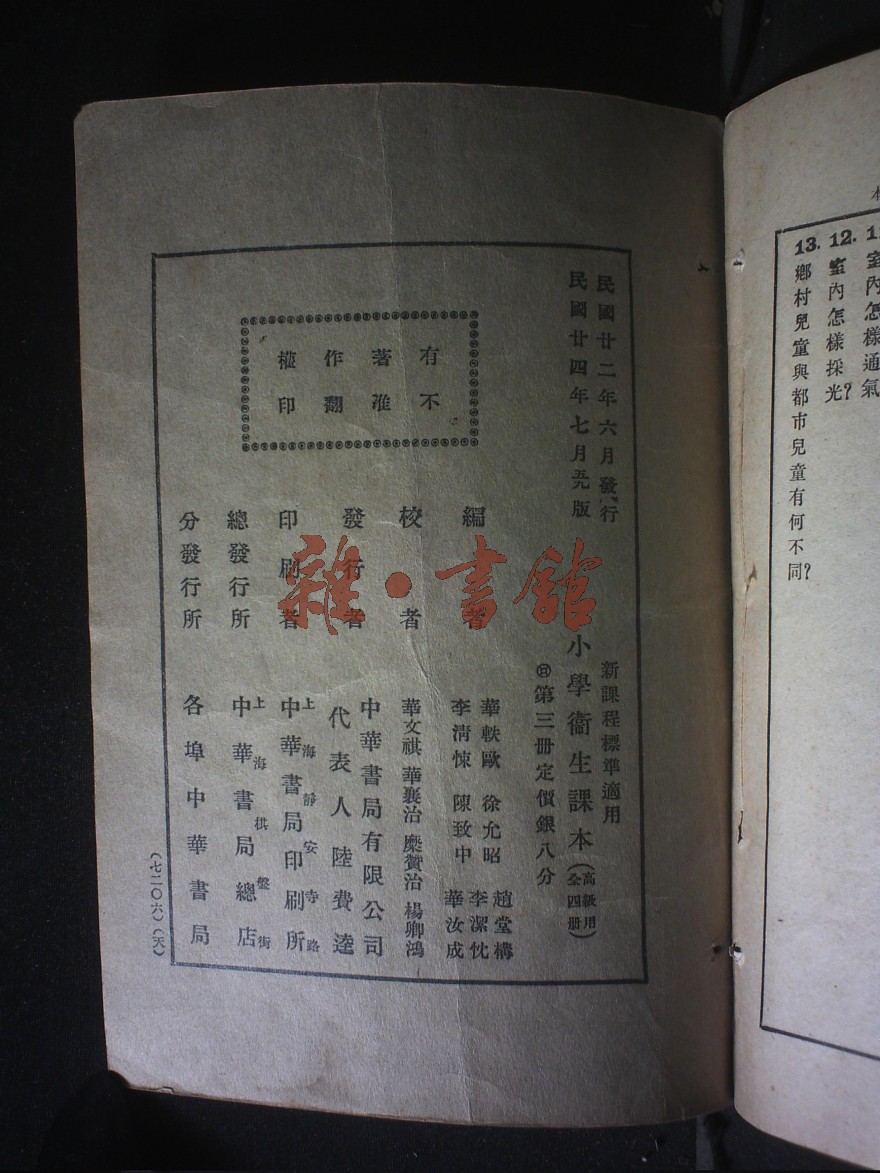 本
11.室內怎樣通氣
12.室內怎樣採光?
13.鄉村兒童與都市兒童有何不同?
民國廿二年六月發行
民國廿四年七月 版
新課程標準適用
小學衞生課本(高級用 全四册)
第三册定價銀八分
有著作權
不准翻印
編者
華軼歐 徐允昭 趙堂構
李清悚 陳致中 李潔忱
華汝成
校者
華文祺 華襄治 糜贊治 楊卿鴻
發行者
中華書局有限公司
代表人陸費逵
印刷者
上海靜安寺路
中華書局印刷所
總發行所
上海棋盤街
中華書局總店
分發行所
各埠中華書局
(七二〇六)(天)
雜·書館